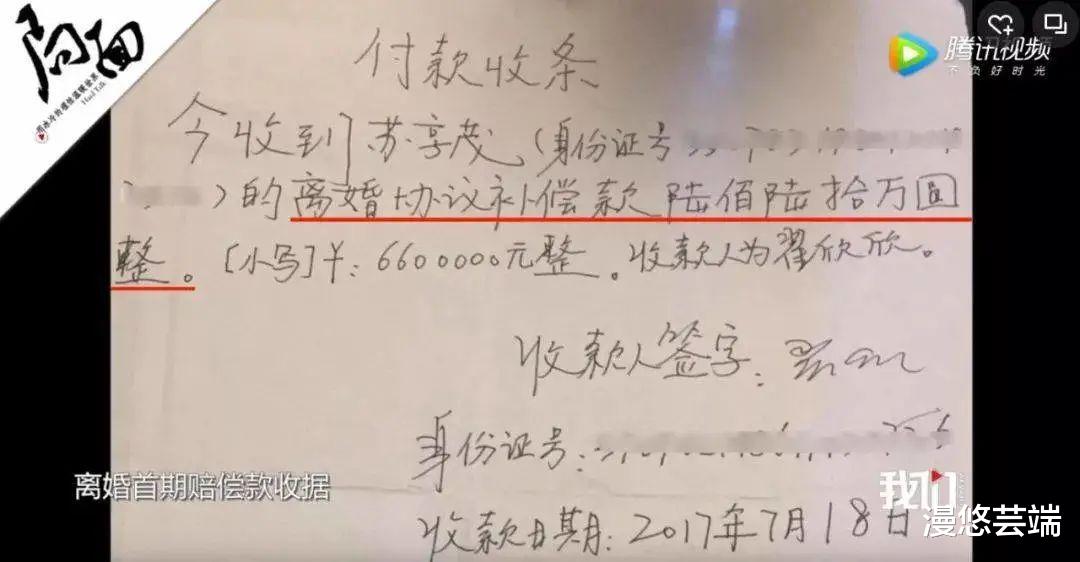 局面
Hard Talk
腾讯视频
不负好时光
付款收条
今收到苏享茂(身份证号
)的离婚协议补偿款陆佰陆拾万圆
整。[小写]¥:6600000元整。收款人为翟欣欣。
收款人签字:
身份证号:
离婚首期赔偿款收据
我们
漫悠芸端
收款日期:2017年7月18日